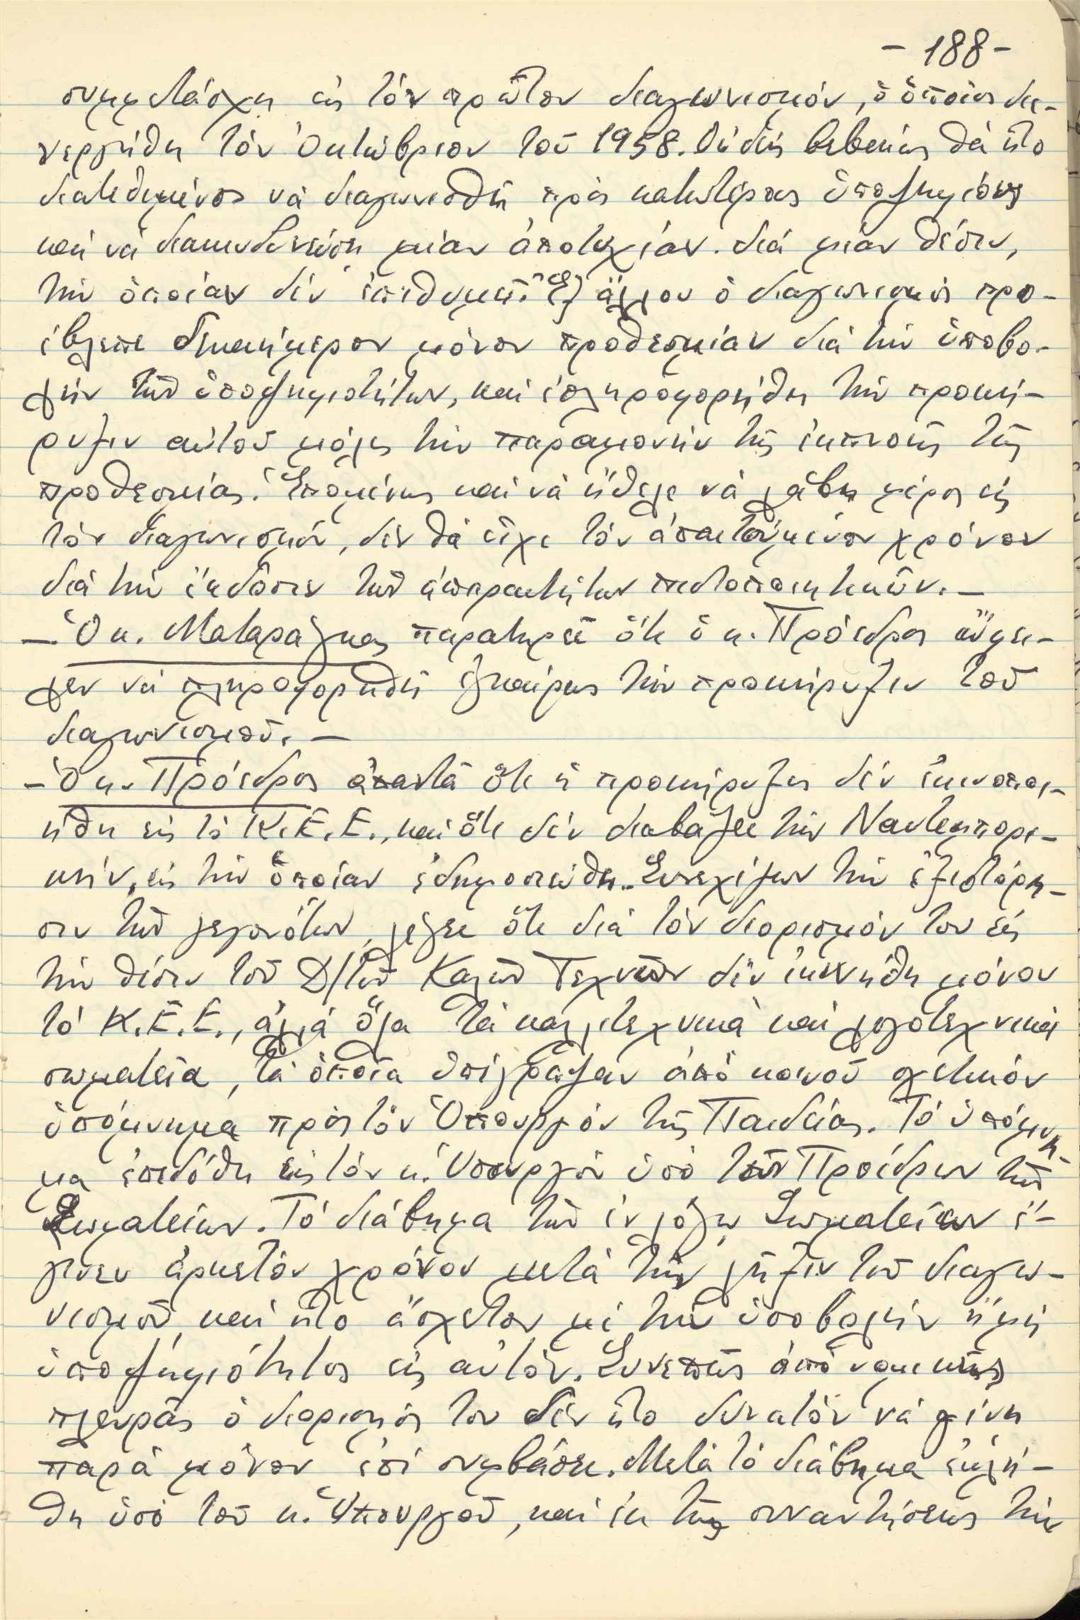 - 188 -
συμμετάσχη εἰς τόν πρῶτον διαγωνισμόν, ὁ ὁποῖος διε-
νεργήθη τόν Ὀκτώβριον τοῦ 1958. Οὐδείς βεβαίως θά ἦτο
διατεθειμένος νά διαγωνισθῆ πρός κατωτέρους ὑποψηφίους
καί νά διακινδυνεύση μίαν ἀποτυχίαν. διά μίαν θέσιν,
τήν ὁποίαν δέν ἐπεθύμει. Ἐξ ἄλλου ὁ διαγωνισμός προ-
έβλεπε δεκαήμερον μόνον προθεσμίαν διά τήν ὑποβο-
λήν τῶν ὑποψηφιοτήτων, καί ἐπληροφορήθη τήν προκή-
ρυξιν αὐτοῦ μόλις τήν παραμονήν τῆς ἐκπνοῆς τῆς
προθεσμίας. Ἑπομένως καί νά ἤθελε νά λάβη μέρος εἰς
τόν διαγωνισμόν, δέν θά εἶχε τόν ἀπαιτούμενον χρόνον
διά τήν ἔκδοσιν τῶν ἀπαραιτήτων πιστοποιητικῶν. -
- Ὁ κ. Ματαράγκας παρατηρεῖ ὅτι ὁ κ. Πρόεδρος ὤφει-
λεν νά πληροφορηθῆ ἐγκαίρως τήν προκήρυξιν τοῦ
διαγωνισμοῦ. -
- Ὁ κ. Πρόεδρος ἀπαντᾶ ὅτι ἡ προκήρυξις δέν ἐκοινοποι-
ήθη εἰς τό Κ.Ε.Ε., καί ὅτι δέν διαβάζει τήν Ναυτεμπορι-
κήν, εἰς τήν ὁποίαν ἐδημοσιεύθη. Συνεχίζων τήν ἐξιστόρη-
σιν τῶν γεγονότων, λέγει ὅτι διά τόν διορισμόν του εἰς
τήν θέσιν τοῦ Δ/τοῦ Καλῶν Τεχνῶν δέν ἐκινήθη μόνον
τό Κ.Ε.Ε., ἀλλά ὅλα τά καλλιτεχνικά καί λογοτεχνικά
σωματεῖα, τά ὁποῖα ὑπέγραψαν ἀπό κοινοῦ σχετικόν
ὑπόμνημα πρός τόν Ὑπουργόν τῆς Παιδείας. Τό ὑπόμνη-
μα ἐπεδόθη εἰς τόν κ. Ὑπουργόν ὑπό τῶν Προέδρων τῶν
Σωματείων. Τό διάβημα τῶν ἐν λόγω Σωματείων ἔ-
γινεν ἀρκετόν χρόνον μετά τήν λῆξιν τοῦ διαγω-
νισμοῦ, καί ἦτο ἄσχετον μέ τήν ὑποβολήν ἤ μή
ὑποψηφιότητος εἰς αὐτόν. Συνεπῶς ἀπό νομικῆς
πλευρᾶς ὁ διορισμός του δέν ἦτο δυνατόν νά γίνη
παρά μόνον ἐπί συμβάσει. Μετά τό διάβημα ἐκλή-
θη ὑπό τοῦ κ. Ὑπουργοῦ, καί ἐκ τῆς συναντήσεως τήν